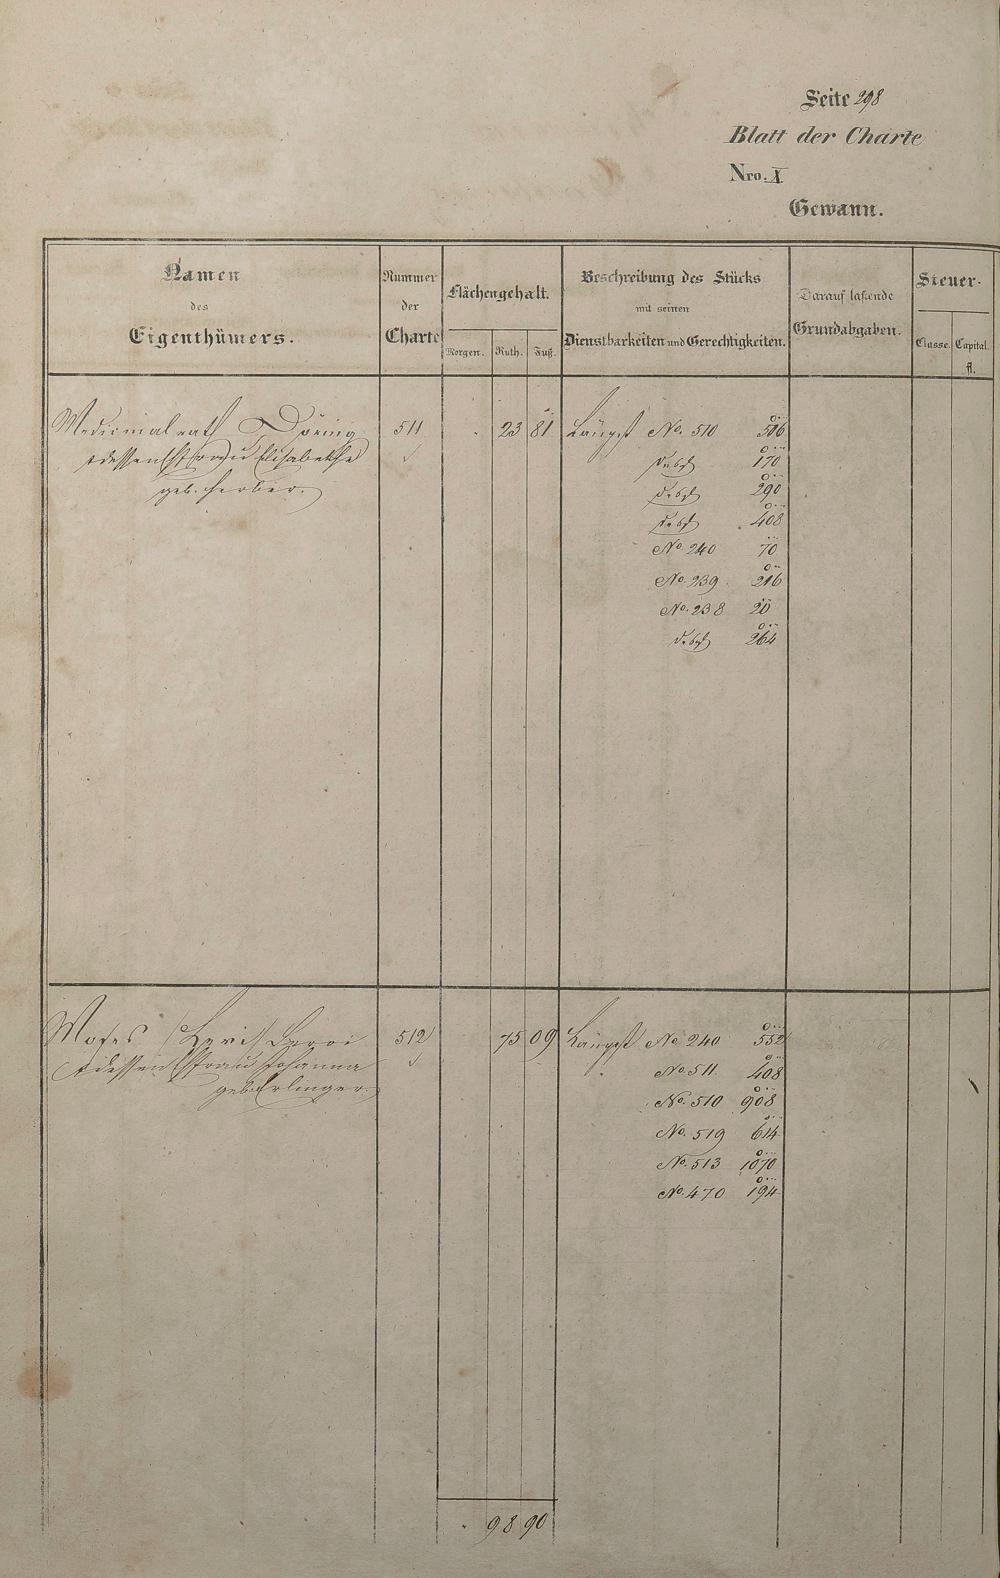 Seite 298
Blatt der Charte
Nro. X
Gewann.
Namen des Eigenthümers.
Nummer der Charte
Flächengehalt.
Morgen. Ruth. Fuß.
Beschreibung des Stücks mit seinen Dienstbarkeiten und Gerechtigkeiten.
Darauf laſtende Grundabgaben.
Steuer-
Classe. Capital. fl.
Medicinalrath Döring 511 . 23 81 Längst No. 510 506
dessen Ehefrau Elisabetha desgl 170
geb. Ferber. desgl 290
desgl 408
No. 240 70
No. 239 216
No. 238 20
desgl 264
Moses (Levi) 512 75 09 Längst No. 240 552
dessen Ehefrau Johanna No. 511 408
geb. Erlinger. No. 510 908
No. 519 614
No. 513 1070
No. 470 194
. 98 90